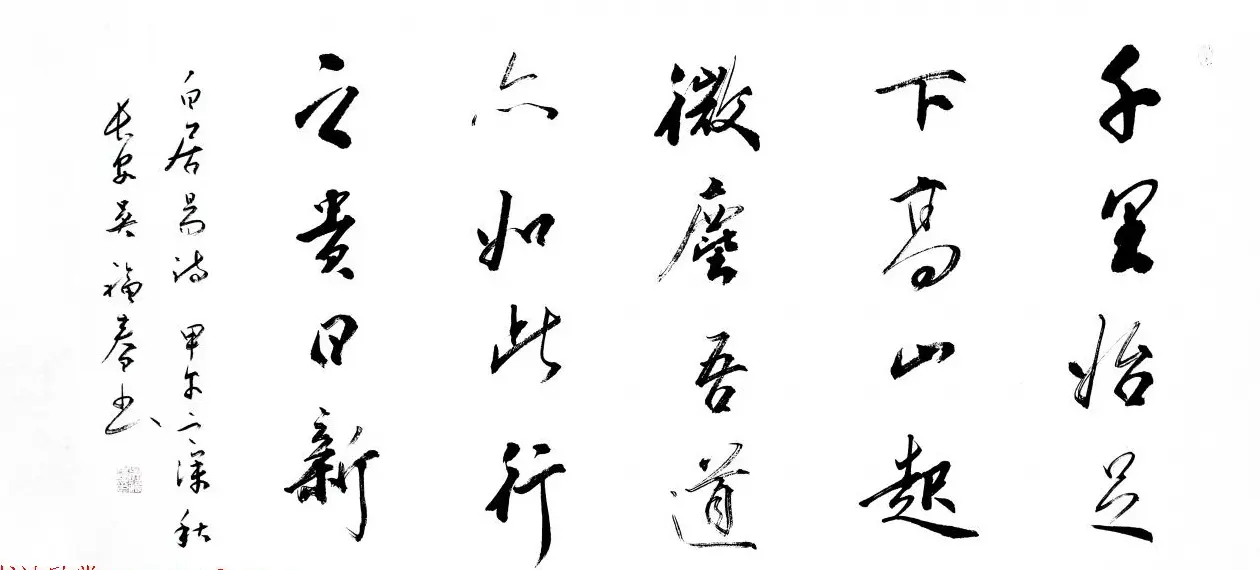 千里始足
下高山起
微塵吾道
亦如此行
之貴日新
白居易詩 甲午之深秋
長安吳福春書